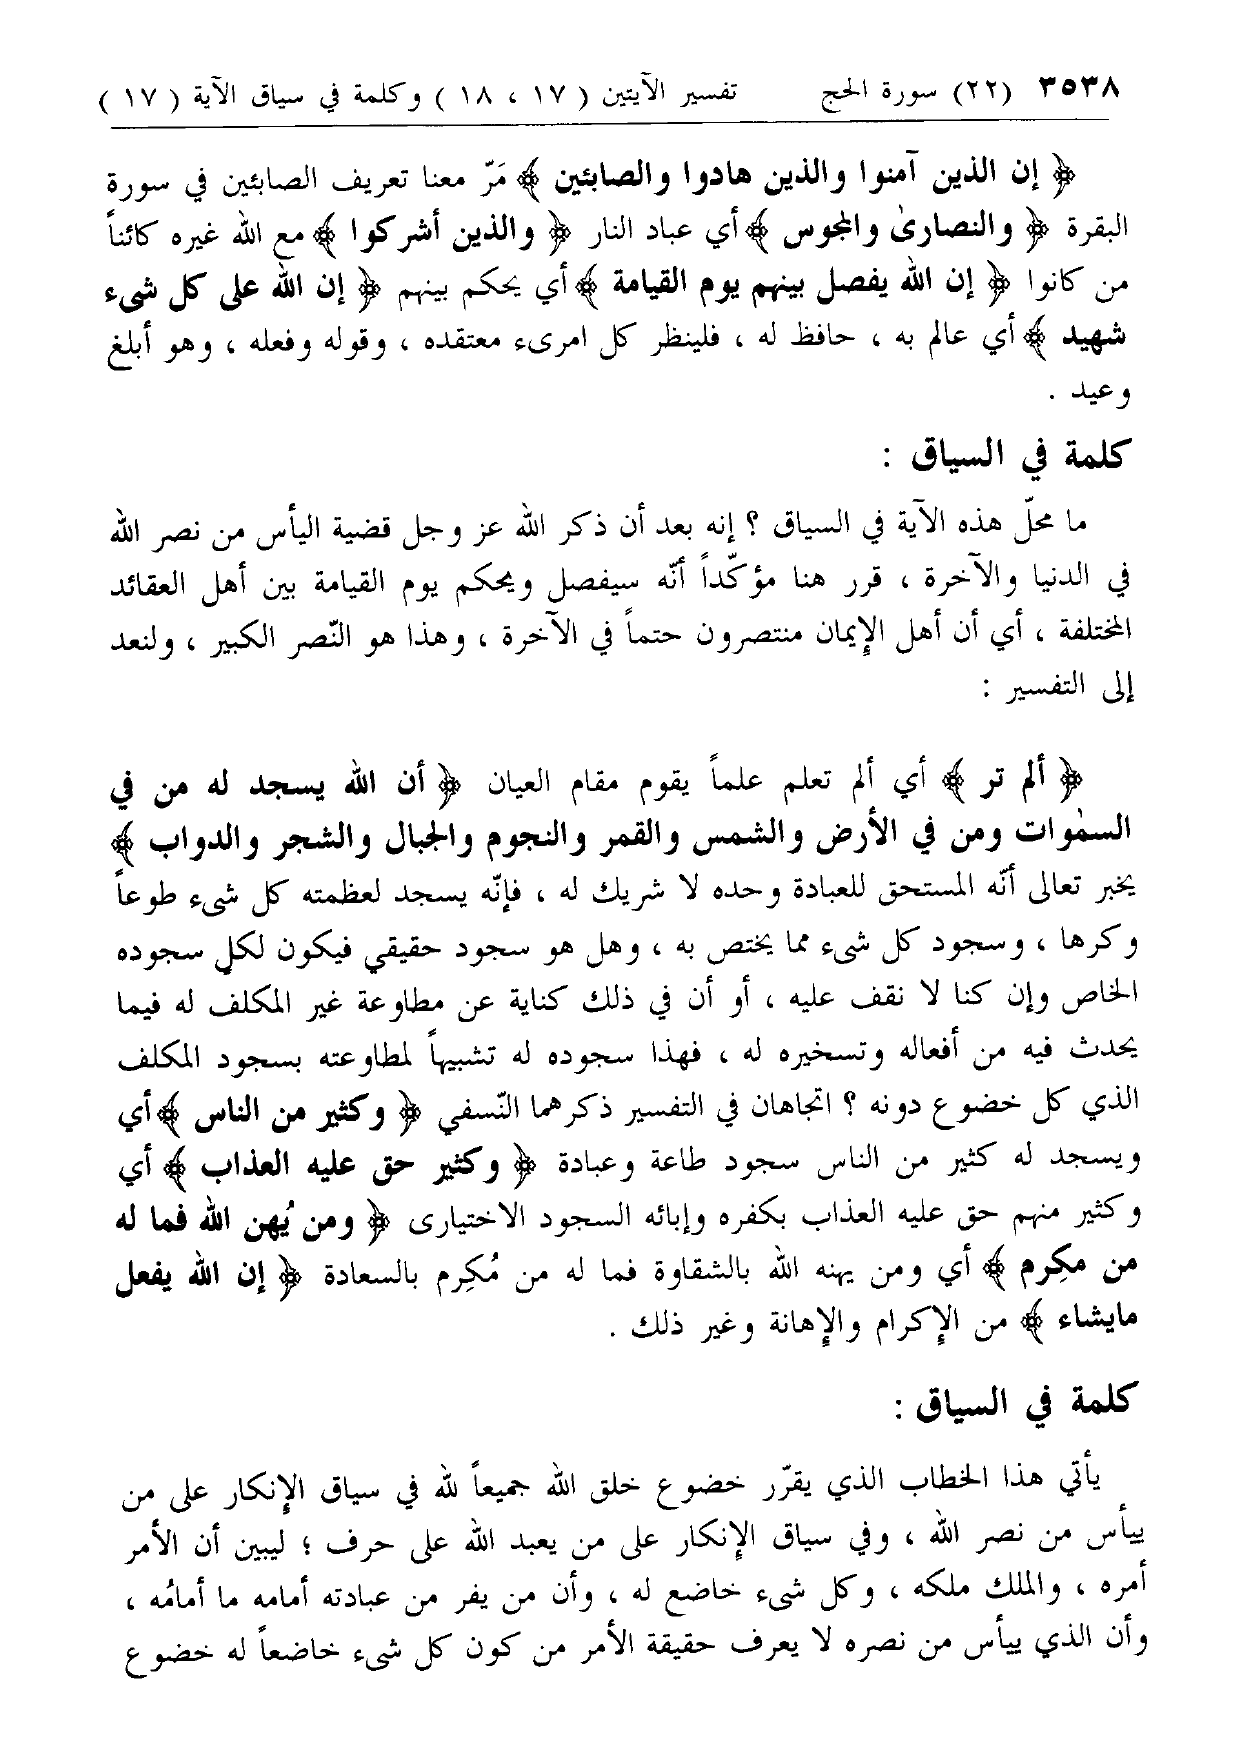 ٣٥٣٨ (٢٢) سورة الحج تفسير الآيتين ( ١٧ ، ١٨ ) وكلمة في سياق الآية ( ١٧ )
﴿ إن الذين آمنوا والذين هادوا والصابئين ﴾ مَرّ معنا تعريف الصابئين في سورة
البقرة ﴿ والنصارىٰ والمجوس ﴾ أي عباد النار ﴿ والذين أشركوا ﴾ مع الله غيره كائناً
من كانوا ﴿ إن الله يفصل بينهم يوم القيامة ﴾ أي يحكم بينهم ﴿ إن الله على كل شىء
شهيد ﴾ أي عالم به ، حافظ له ، فلينظر كل امرىء معتقده ، وقوله وفعله ، وهو أبلغ
وعيد .
كلمة في السياق :
ما محلّ هذه الآية في السياق ؟ إنه بعد أن ذكر الله عز وجل قضية اليأس من نصر الله
في الدنيا والآخرة ، قرر هنا مؤكّداً أنّه سيفصل ويحكم يوم القيامة بين أهل العقائد
المختلفة ، أي أن أهل الإيمان منتصرون حتماً في الآخرة ، وهذا هو النّصر الكبير ، ولنعد
إلى التفسير :
﴿ ألم تر ﴾ أي ألم تعلم علماً يقوم مقام العيان ﴿ أن الله يسجد له من في
السمٰوات ومن في الأرض والشمس والقمر والنجوم والجبال والشجر والدواب ﴾
يخبر تعالى أنّه المستحق للعبادة وحده لا شريك له ، فإنّه يسجد لعظمته كل شىء طوعاً
وكرها ، وسجود كل شىء مما يختص به ، وهل هو سجود حقيقي فيكون لكل سجوده
الخاص وإن كنا لا نقف عليه ، أو أن في ذلك كناية عن مطاوعة غير المكلف له فيما
يحدث فيه من أفعاله وتسخيره له ، فهذا سجوده له تشبيهاً لمطاوعته بسجود المكلف
الذي كل خضوع دونه ؟ اتجاهان في التفسير ذكرهما النّسفي ﴿ وكثير من الناس ﴾ أي
ويسجد له كثير من الناس سجود طاعة وعبادة ﴿ وكثير حق عليه العذاب ﴾ أي
وكثير منهم حق عليه العذاب بكفره وإبائه السجود الاختيارى ﴿ ومن يُهن الله فما له
من مكرِم ﴾ أي ومن يهنه الله بالشقاوة فما له من مُكرِم بالسعادة ﴿ إن الله يفعل
مايشاء ﴾ من الإكرام والإهانة وغير ذلك .
كلمة في السياق :
يأتي هذا الخطاب الذي يقرّر خضوع خلق الله جميعاً لله في سياق الإنكار على من
ييأس من نصر الله ، وفي سياق الإنكار على من يعبد الله على حرف ؛ ليبين أن الأمر
أمره ، والملك ملكه ، وكل شىء خاضع له ، وأن من يفر من عبادته أمامه ما أمامُه ،
وأن الذي ييأس من نصره لا يعرف حقيقة الأمر من كون كل شىء خاضعاً له خضوع